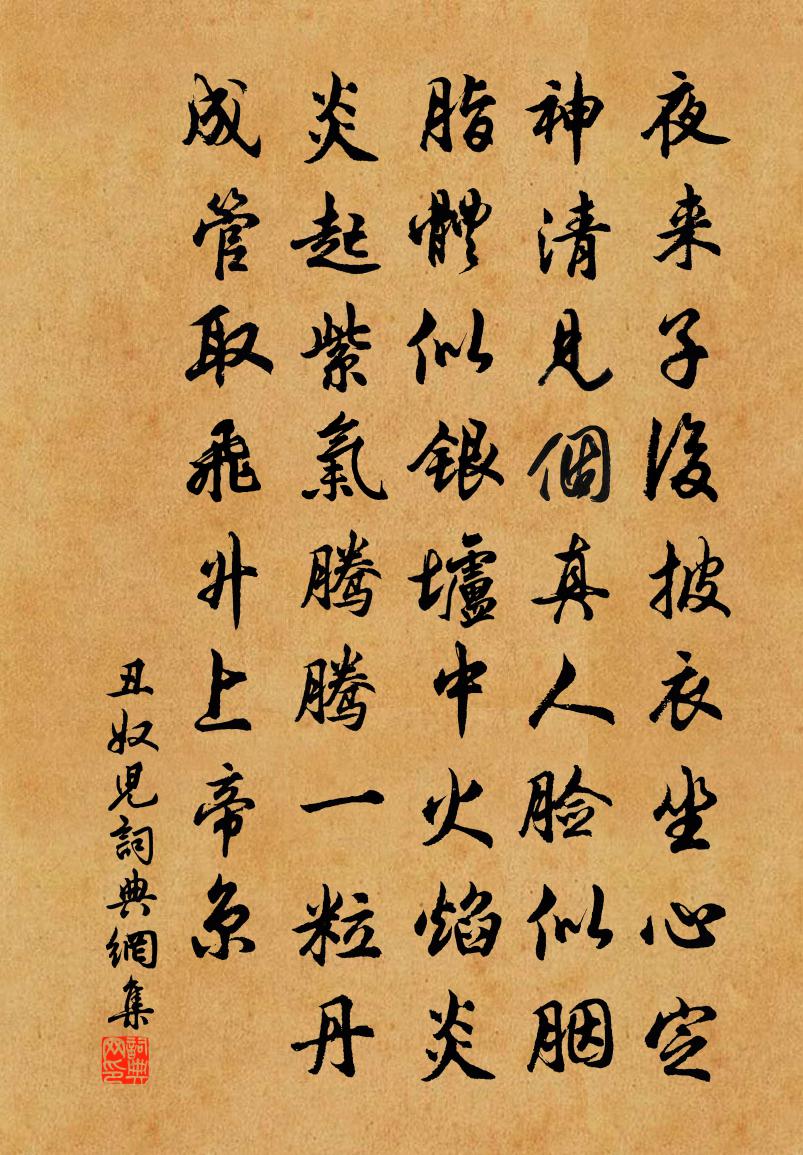 夜来子後披衣坐心定
神清見個真人脸似胭
脂體似銀壚中火焰炎
炎起紫氣騰騰一粒丹
成管取飛升上帝京
丑奴兒詞典網集
詞典網印